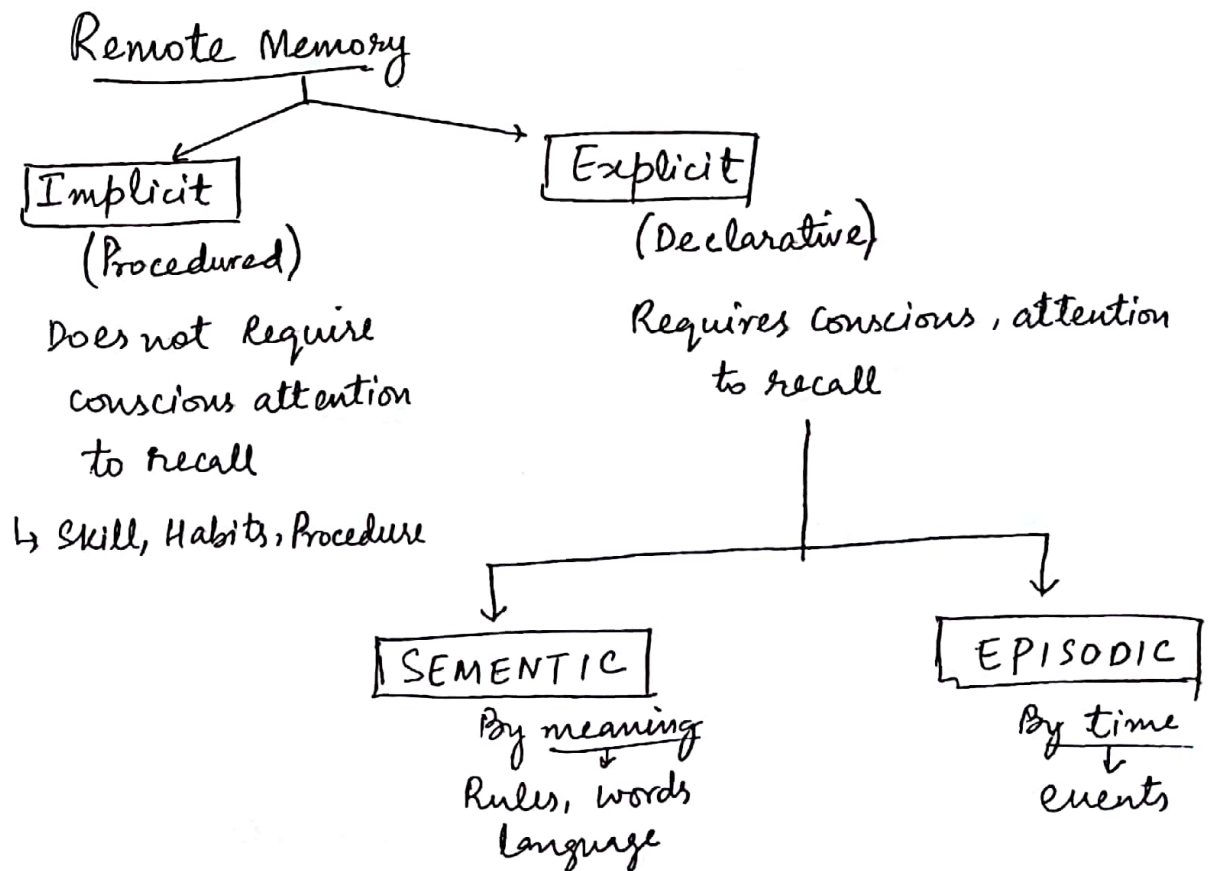 Remote Memory
Implicit
(Procedured)
Does not Require
conscious attention
to recall
↳ Skill, Habits, Procedure
Explicit
(Declarative)
Requires conscious, attention
to recall
SEMENTIC
By meaning
Rules, words
language
EPISODIC
By time
events